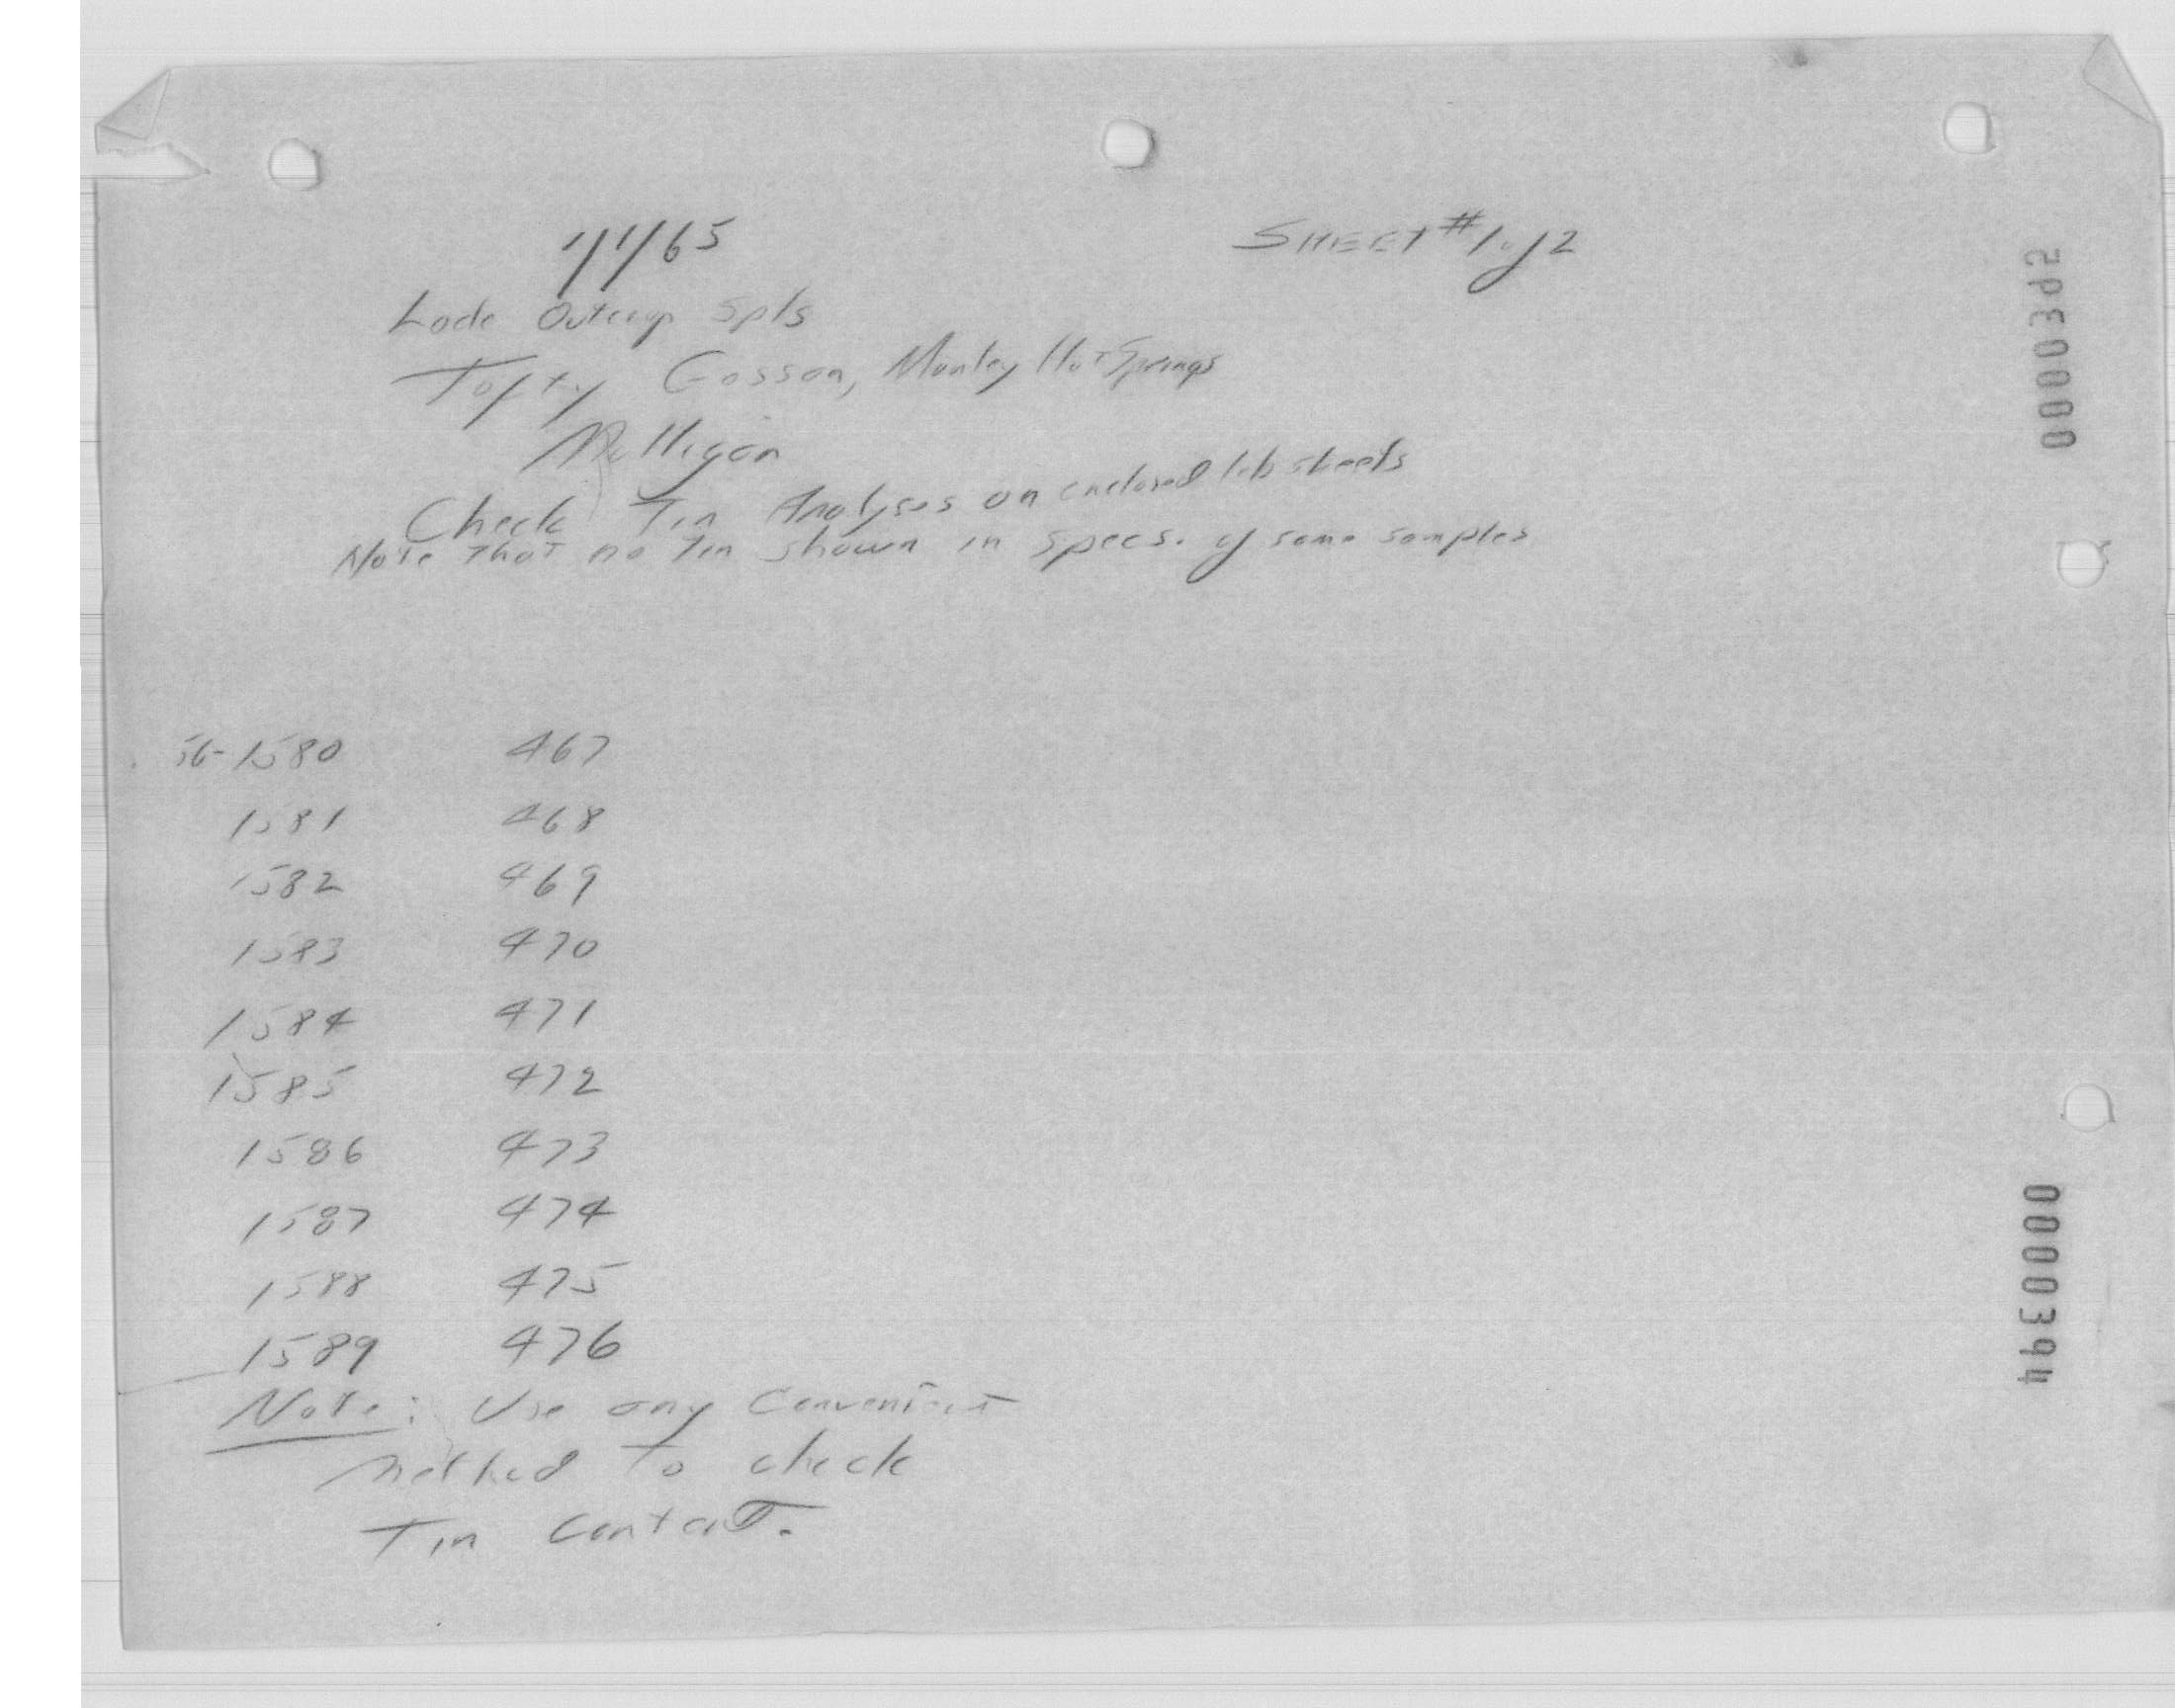 SHEET #1 of 2
Lode Outcrop Spls
Tofty Gossan, Manley Hot Springs
Mulligan
Check Tin Analyses on enclosed lab sheets
Note that no Tin shown in specs. of some samples
56-1580 467
1581 468
1582 469
1583 470
1584 471
1585 472
1586 473
1587 474
1588 475
1589 476
Note: Use any Convenient
method to check
Tin Content.
0000395
0000394